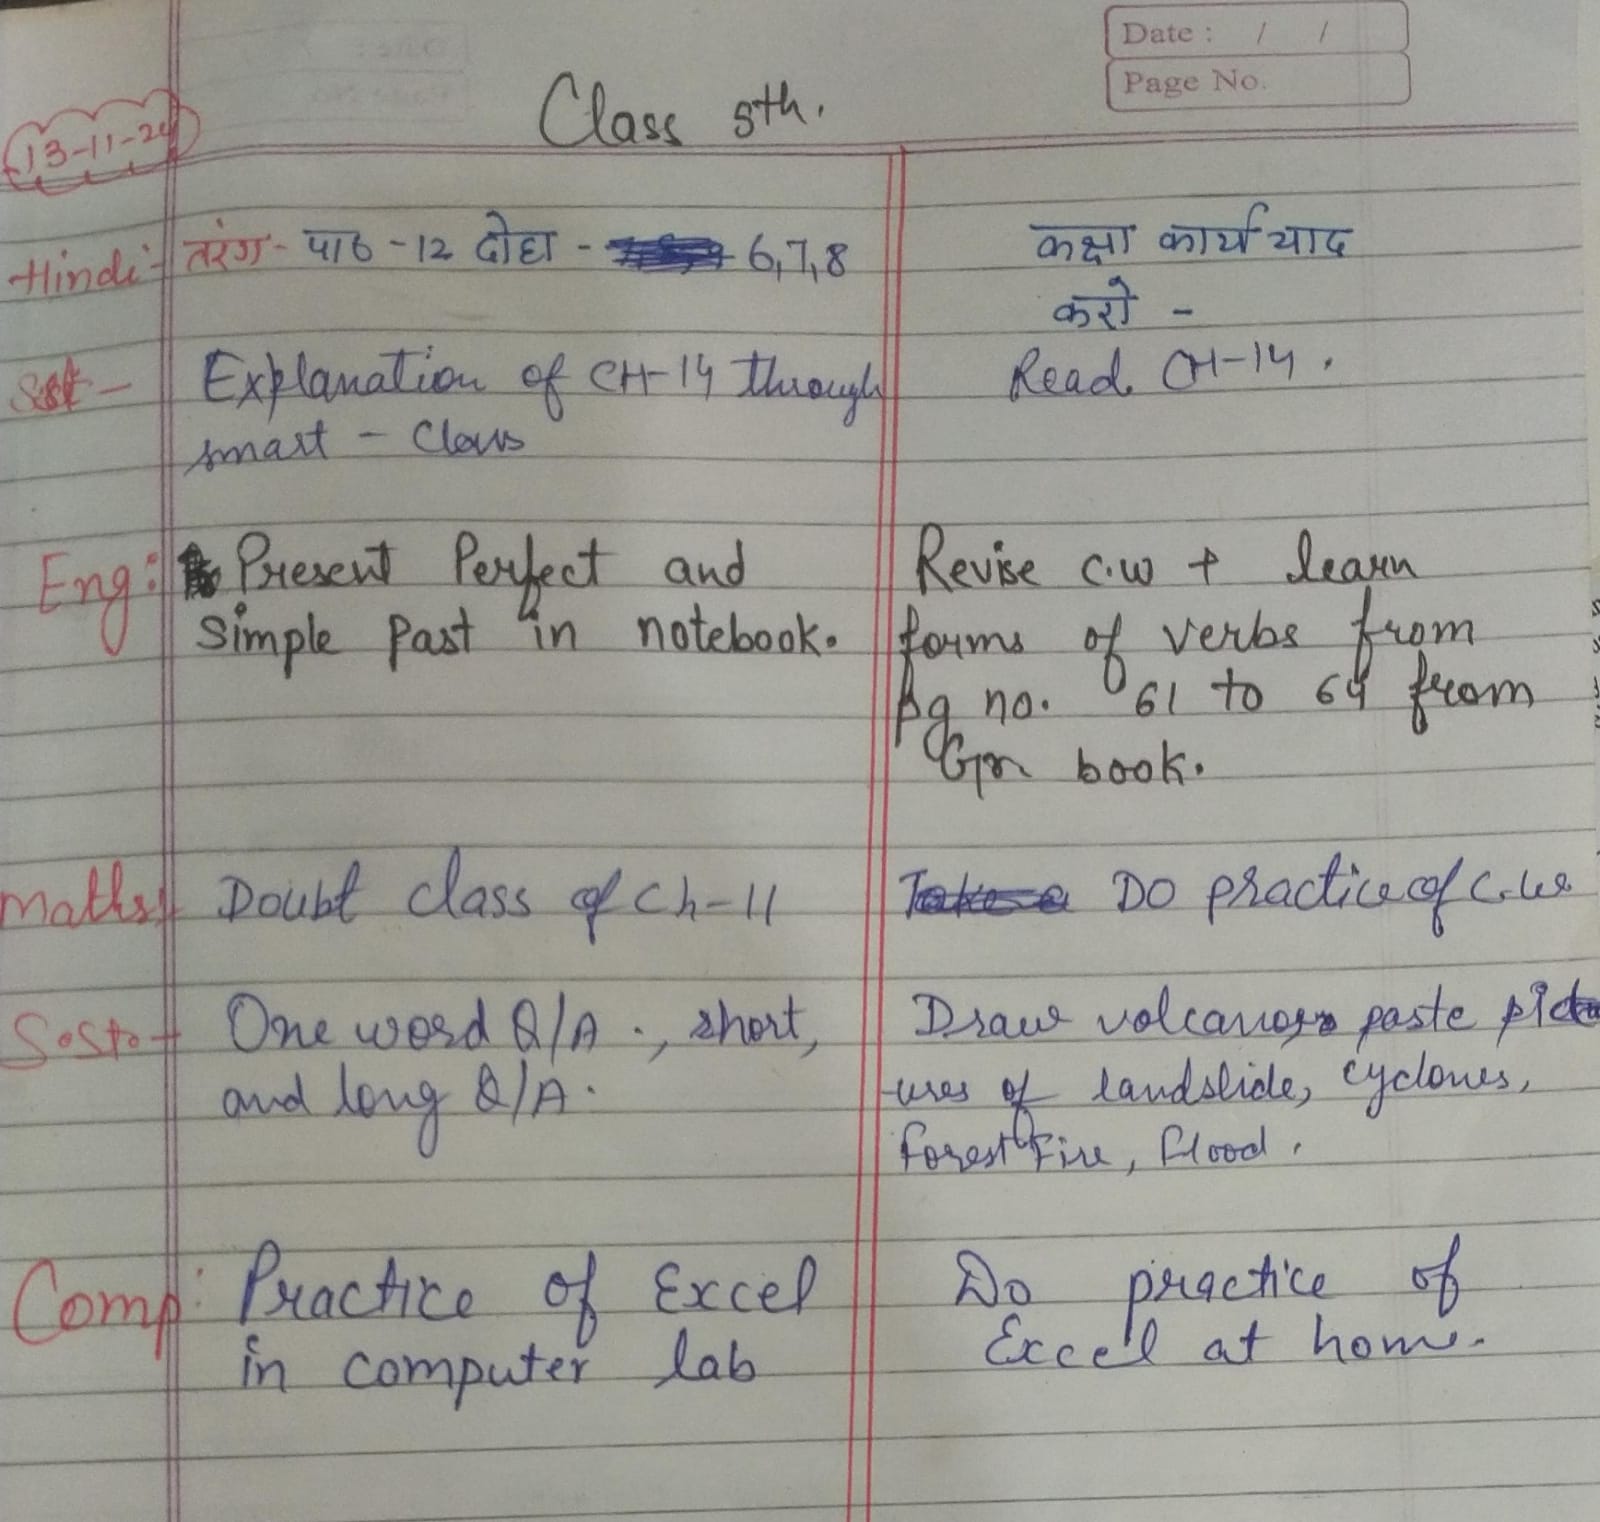 Date : / /
Page No.
Class 5th.
13-11-24
Hindi:- तरंग - पाठ -12 दोहा - 6,7,8
कक्षा कार्य याद
करो -
Sst - Explanation of CH-14 through
smart - Class
Read CH-14.
Eng: Present Perfect and
simple past in notebook.
Revise c.w + learn
forms of verbs from
pg no. 61 to 64 from
Gr book.
Maths:- Doubt class of Ch-11
DO practice of C.w
S.st. - One word Q/A ., short,
and long Q/A.
Draw volcano, paste pict
ures of landslide, cyclones,
forest Fire, flood.
Comp: Practice of Excel
in computer lab
Do practice of
Excel at home.